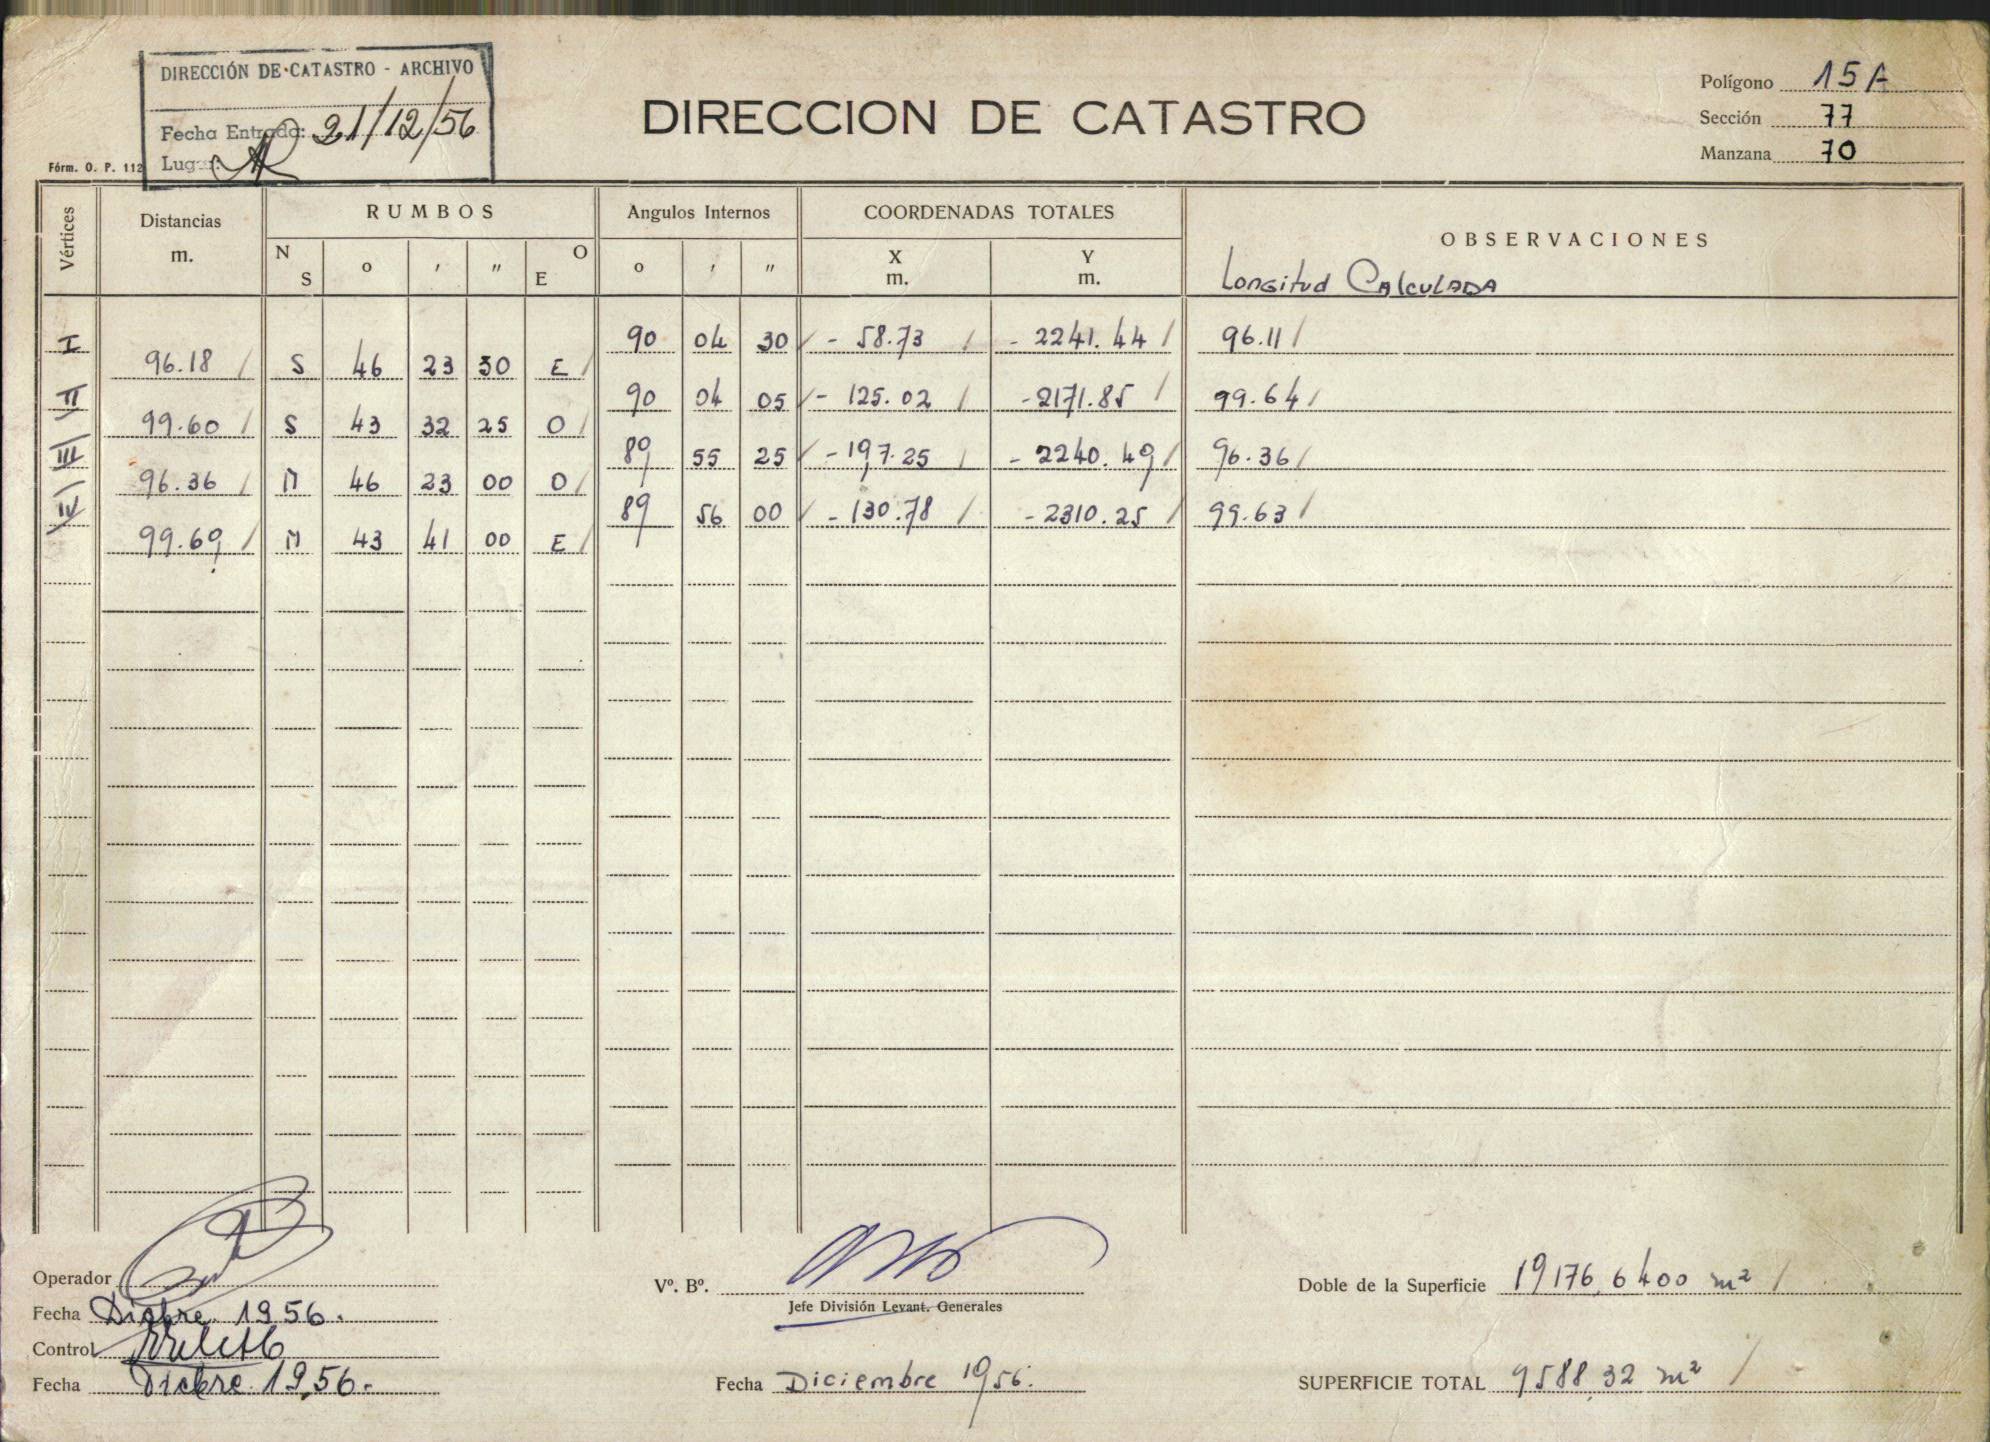 DIRECCIÓN DE CATASTRO - ARCHIVO
Fecha Entrada: 21/12/56
Lugar:
Fórm. O. P. 112
DIRECCION DE CATASTRO
Polígono 15A
Sección 77
Manzana 70
Vértices Distancias m. RUMBOS Angulos Internos COORDENADAS TOTALES OBSERVACIONES
N S o ' " O E o ' " X m. Y m. Longitud Calculada
I 90 04 30 - 58.73 - 2241.44 96.11
96.18 S 46 23 30 E
II 90 04 05 - 125.02 - 2171.85 99.64
99.60 S 43 32 25 O
III 89 55 25 - 197.25 - 2240.49 96.36
96.36 N 46 23 00 O
IV 89 56 00 - 130.78 - 2310.25 99.63
99.69 N 43 41 00 E
Operador
Fecha Dicbre. 1956.
Control
Fecha Dicbre. 1956.
Vº. Bº.
Jefe División Levant. Generales
Fecha Diciembre 1956.
Doble de la Superficie 19176,6400 m²
SUPERFICIE TOTAL 9588,32 m²